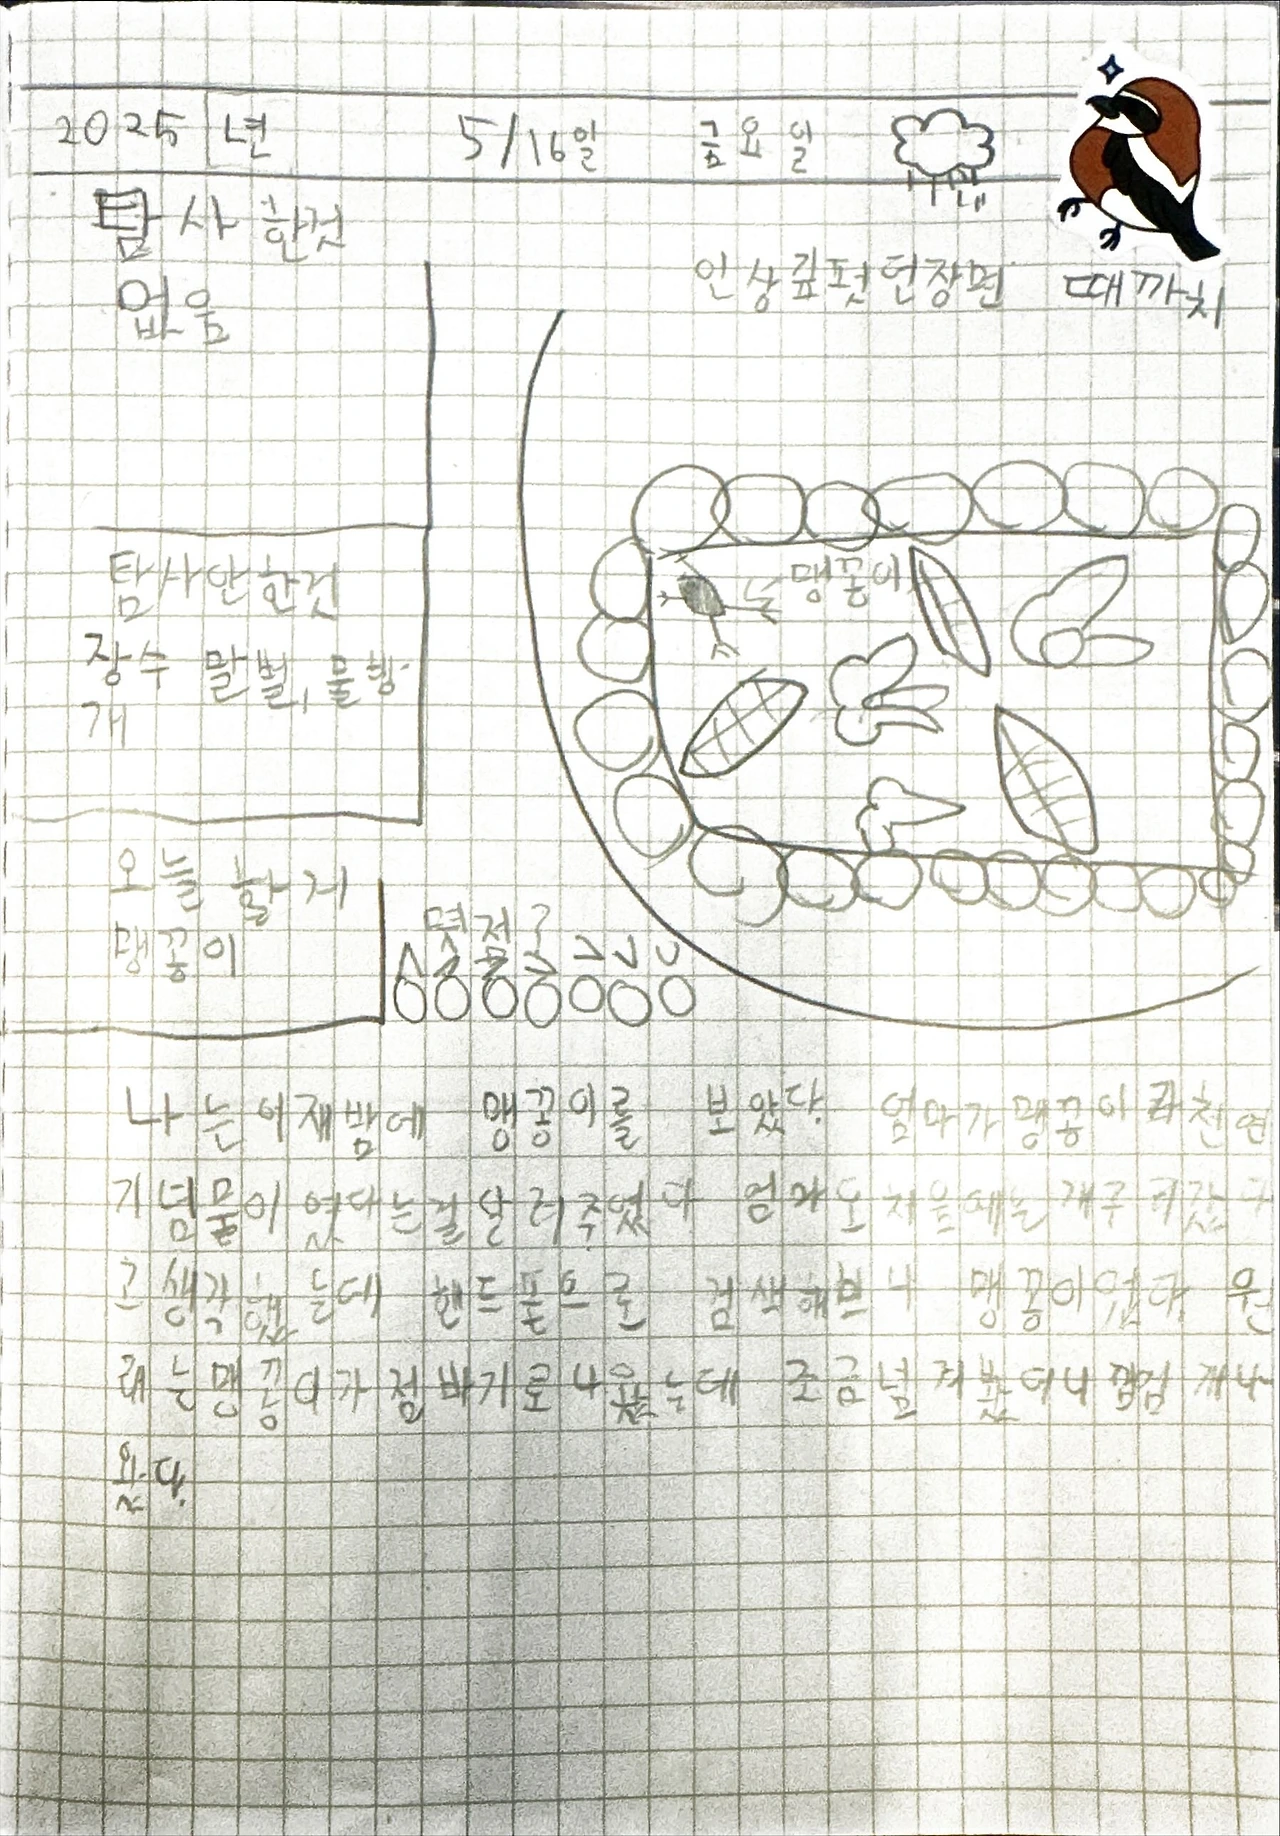 2025 년 5/16일 금요일
탐사한것
없음
인상깊펏던장면
때까치
탐사안한것
장수 말벌, 물방
개
맹꽁이
오늘 할 거
맹꽁이
몇점?
나는어재밤에 맹꽁이를 보았다. 엄마가맹꽁이라천연
기념물이였다는걸알려주었다 엄마도처음에는개구리같다
고생각했는데 핸드폰으로 검색해보니 맹꽁이였다. 원
래는맹꽁이가점바기로나왔는데 조금널려봤더니 게나
왔다.